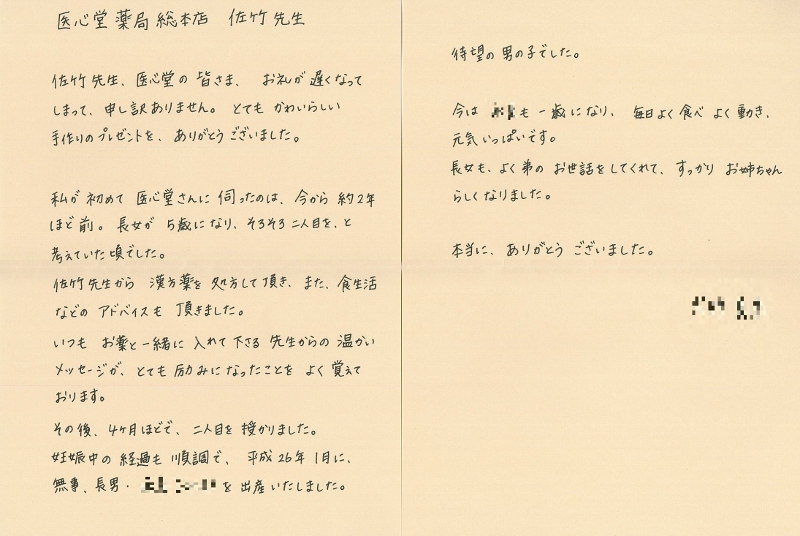 医心堂薬局 総本店 佐竹先生
佐竹先生、医心堂の皆さま、お礼が遅くなって
しまって、申し訳ありません。とてもかわいらしい
手作りのプレゼントを、ありがとうございました。
私が初めて医心堂さんに伺ったのは、今から約2年
ほど前。長女が5歳になり、そろそろ二人目を、と
考えていた頃でした。
佐竹先生から漢方薬を処方して頂き、また、食生活
などのアドバイスも頂きました。
いつもお薬と一緒に入れて下さる先生からの温かい
メッセージが、とても励みになったことをよく覚えて
おります。
その後、4ヶ月ほどで、二人目を授かりました。
妊娠中の経過も順調で、平成26年1月に、
無事、長男・を出産いたしました。
待望の男の子でした。
今はも一歳になり、毎日よく食べよく動き、
元気いっぱいです。
長女も、よく弟のお世話をしてくれて、すっかりお姉ちゃん
らしくなりました。
本当に、ありがとうございました。